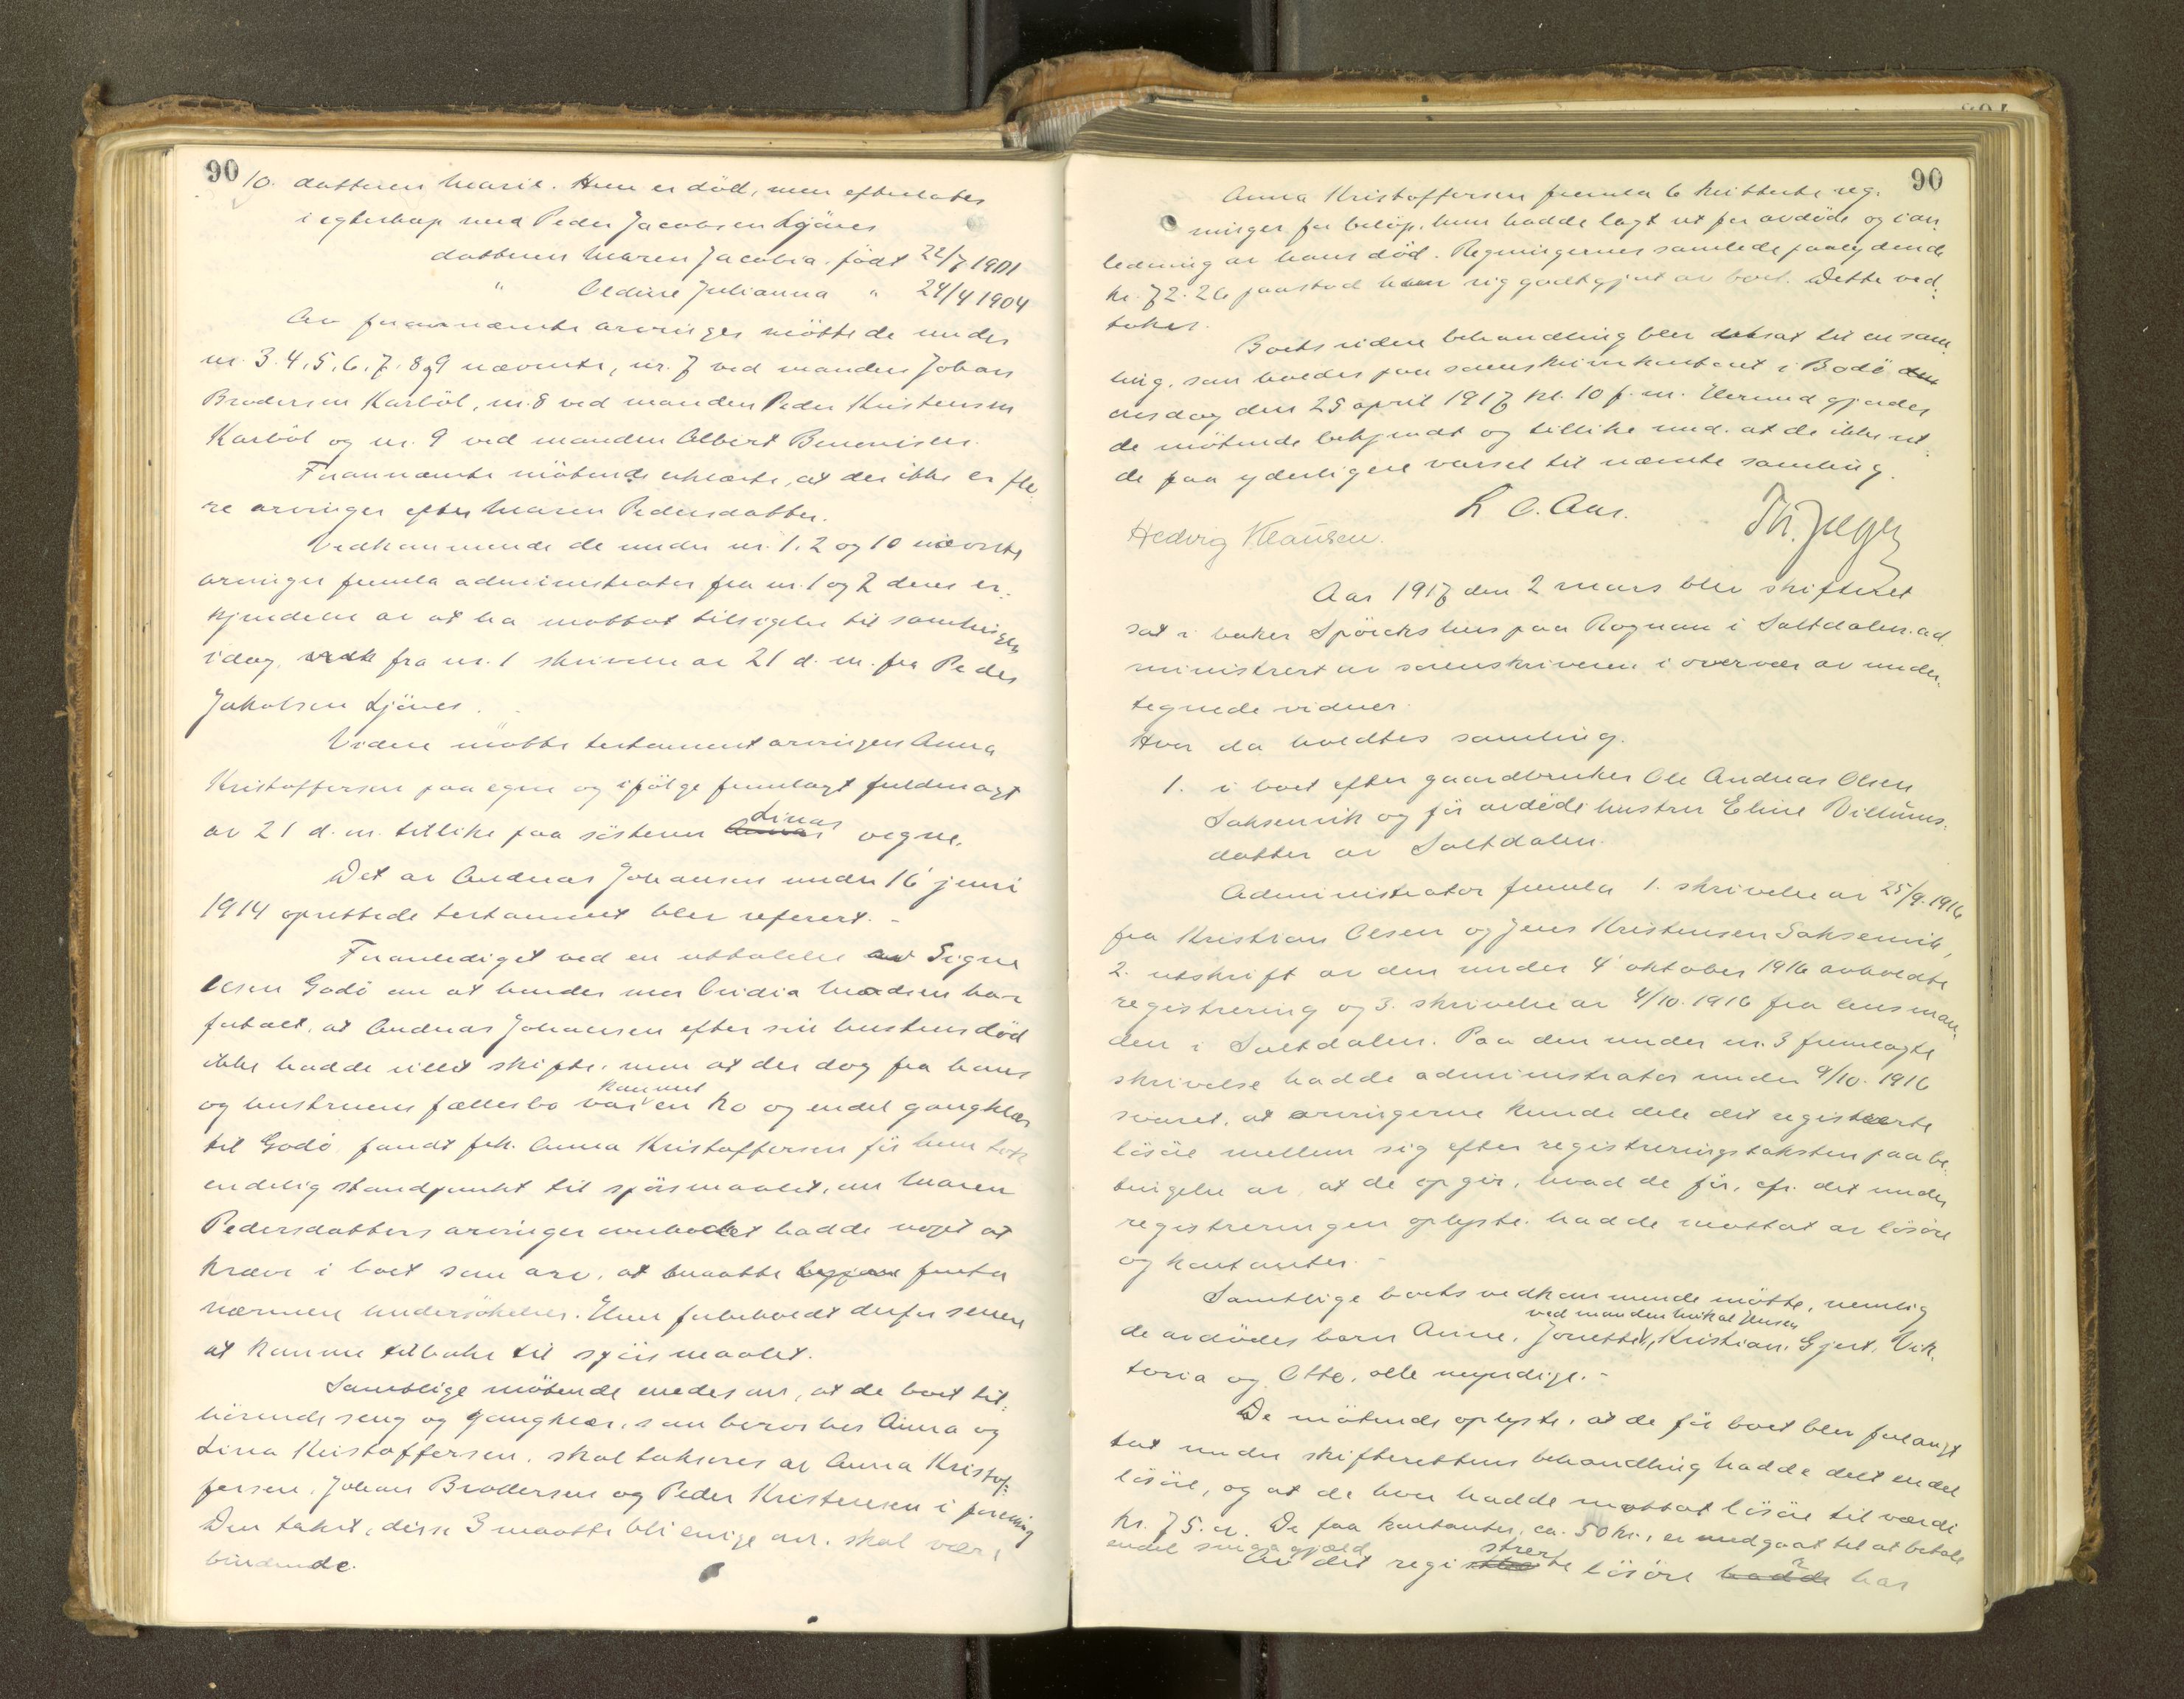 90
10. datteren Marie. Hun er död, men efterlater
i egteskap med Peder Jacobsen Ljönes
datteren Maren Jacobia, födt 22/7 1901
" Oldine Julianna " 24/4 1904
Av forannævnte arvinger mötte de under
nr. 3. 4, 5, 6, 7, 8 og 9 nævnte, nr. 7 ved manden Johan
Brodersen Karböl, nr. 8 ved manden Peder Kristensen
Karböl og nr. 9 ved manden Albert Benonisen.
Forannævnte mötende erklærte, at der ikke er fle-
re arvinger efter Maren Pedersdatter.
Vedkommende de under nr. 1, 2 og 10 nævnte
arvinger fremla administrator fra nr. 1 og 2 deres er-
kjendelse av at ha mottat tilsigelse til samlingen
idag, fra nr. 1 skrivelse av 21 d. m. fra Peder
Jakobsen Ljönes.
Videre mötte testamentarvingen Anna
Kristoffersen paa egne og ifölge fremlagt fuldmagt
av 21 d. m. tillike paa sösteren Linas vegne.
Det av Andreas Johansen under 16 juni
1914 oprettede testament blev referert. -
Foranlediget ved en uttalelse av Signe
Olsen Godö om at hendes mor Ovidia Madsen har
fortalt, at Andreas Johansen efter sin hustrus död
ikke hadde villet skifte, men at der dog fra hans
og hustruens fællesbo var kommet en ko og endel gangklær
til Godö, fandt frk. Anna Kristoffersen för hun tok
endelig standpunkt til spörsmaalet, om Maren
Pedersdatters arvinger overhodet hadde noget at
kræve i boet som arv, at maatte foreta
nærmere undersökelser. Hun forbeholdt derfor senere
at komme tilbake til spörsmaalet.
Samtlige mötende enedes om, at de boet til-
hörende seng og gangklær, som beror hos Anna og
Lina Kristoffersen, skal takseres av Anna Kristof-
fersen, Johan Brodersen og Peder Kristensen i forening
Den takst, disse 3 maatte bli enige om, skal være
bindende.
90
Anna Kristoffersen fremla 6 kvitterte reg-
ninger for belöp, hun hadde lagt ut for avdöde og i an-
ledning av hans död. Regningernes samlede paalydende
kr. 72.26 paastod hun sig godtgjort av boet. Dette ved-
tokes.
Boets videre behandling blev utsat til en sam-
ling, som holdes paa sorenskriverkontoret i Bodö
onsdag den 25 april 1917 kl. 10 f. m. Herved gjordes
de mötende bekjendt og tillike med, at de ikke vil
de faa yderligere varsel til nævnte samling.
L C. Aas. Th. Jæger
Hedvig Klausen.
Aar 1917 den 2 mars blev skifteret
sat i baker Spörcks hus paa Rognan i Saltdalen ad-
ministrert av sorenskriveren i overvær av under-
tegnede vidner.
Hvor da holdtes samling.
1. i boet efter gaardbruker Ole Andreas Olsen
Saksenvik og för avdöde hustru Eline Villums-
datter av Saltdalen.
Administrator fremla 1. skrivelse av 25/9. 1916
fra Kristian Olsen og Jens Kristensen Saksenvik,
2. utskrift av den under 4 oktober 1916 avholdte
registrering og 3. skrivelse av 4/10. 1916 fra lensman-
den i Saltdalen. Paa den under nr. 3 fremlagte
skrivelse hadde administrator under 9/10. 1916
svaret, at arvingerne kunde dele det registrerte
lösöre mellem sig efter registreringstaksten paa be-
tingelse av, at de opgir, hvad de för, cfr. det under
registreringen oplyste, hadde mottat av lösöre
og kontanter. -
Samtlige boets vedkommende mötte, nemlig
ved manden Mikal Jensen
de avdödes barn Anne, Jonette, Kristian, Gjert, Vik-
toria og Otto, alle myndige. -
De mötende oplyste, at de för boet blev forlangt
tat under skifterettens behandling hadde delt endel
lösöre, og at de hver hadde mottat lösöre til værdi
kr. 75.00. De faa kontanter, ca. 50 kr., er medgaat til at betale
endel smaa gjæld.
Av det registrerte lösöre har